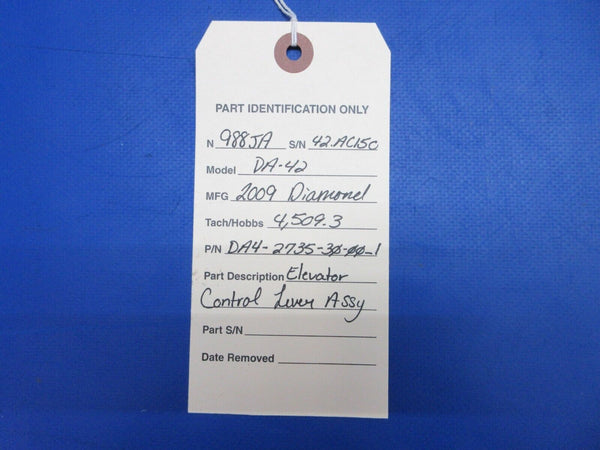 PART IDENTIFICATION ONLY
N 988JA S/N 42.AC150
Model DA-42
MFG 2009 Diamond
Tach/Hobbs 4,509.3
P/N DA4-2735-30-00-1
Part Description Elevator
Control Lever Assy
Part S/N
Date Removed